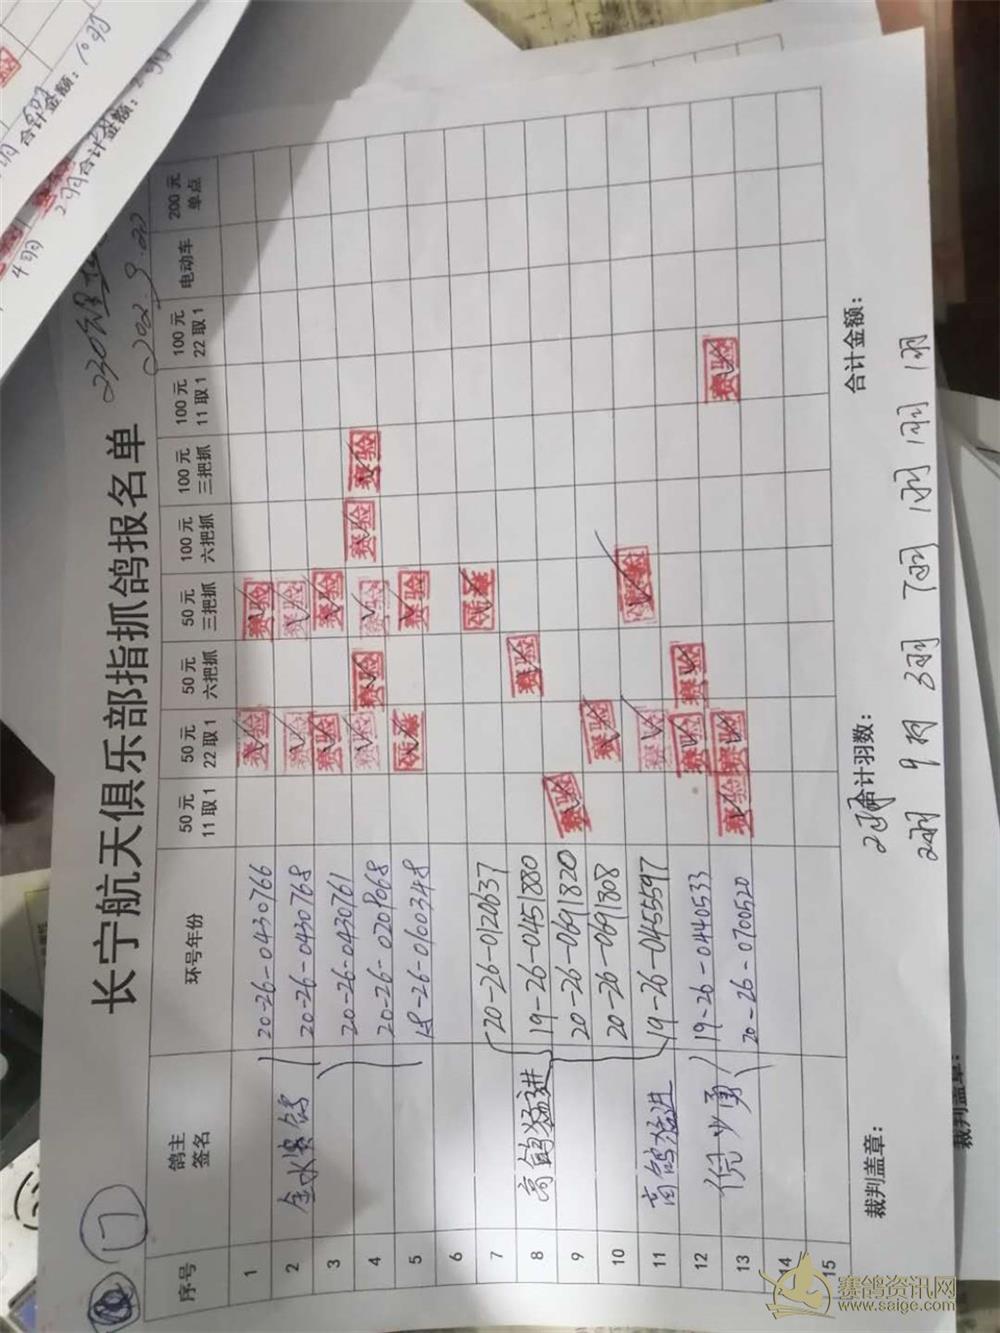 长宁航天俱乐部指抓鸽报名单
17
序号 鸽主签名 环号年份 50元11取1 50元22取1 50元六把抓 50元三把抓 100元六把抓 100元三把抓 100元11取1 100元22取1 电动车 200元单点
1 20-26-0430766 赛验 赛验
2 20-26-0430768 赛验 赛验
3 20-26-0430761 赛验 赛验
4 20-26-0209868 赛验 赛验 赛验 赛验 赛验
5 18-26-0100348 赛验
6
7 20-26-0120637
8 高鸽猛进 19-26-0451880 赛验
9 20-26-0691820 赛验
10 20-26-0691808 赛验
11 高鸽猛进 19-26-0455597 赛验
12 倪少勇 19-26-0440533 赛验 赛验
13 20-26-0700520 赛验 赛验 赛验
14
15
裁判盖章： 合计羽数： 合计金额：
2羽 9羽 3羽 7羽 1羽 1羽 1羽
裁判盖章：
合计金额：10羽
合计金额：
2羽
4羽
赛鸽资讯网
www.saige.com